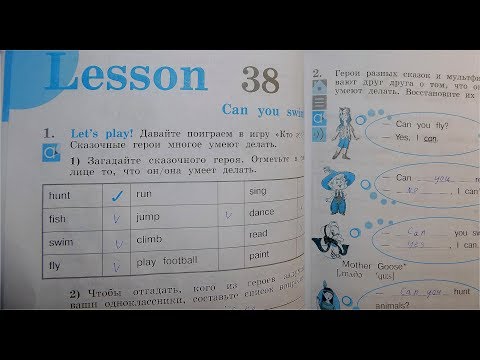 Lesson 38
Can you swim
1. Let's play! Давайте поиграем в игру «Кто
Сказочные герои многое умеют делать.
1) Загадайте сказочного героя. Отметьте в
лице то, что он/она умеет делать.
hunt ✓ run sing
fish v jump v dance
swim v climb read
fly v play football paint
2) Чтобы отгадать, кого из героев
ваши одноклассники, составьте список
2. Герои разных сказок и
вают друг друга о том, что
умеют делать. Восстановите их
Can you fly?
– Yes, I can
Can you
– no, I can't
– Can you sw
– Yes, I can.
Mother Goose*
[ɡuːs]
– Can you hunt
animals?